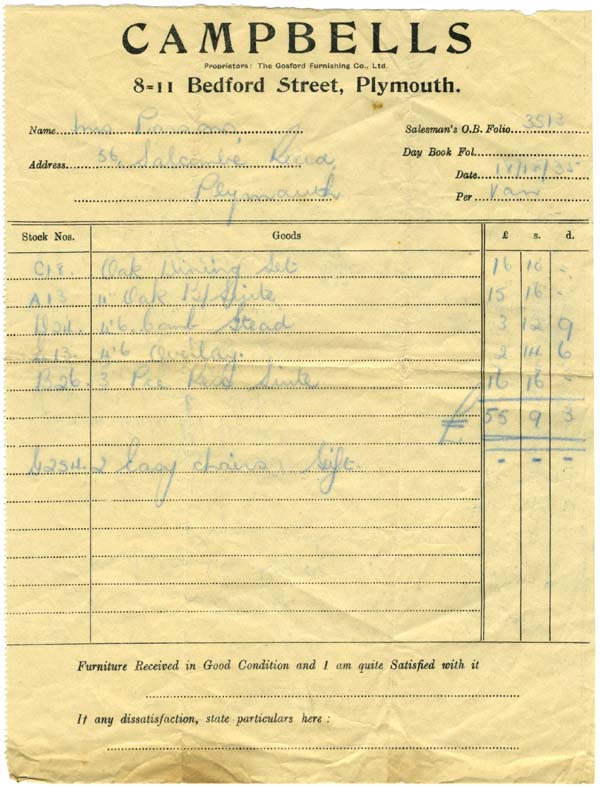 CAMPBELLS
Proprietors: The Gosford Furnishing Co., Ltd.
8=11 Bedford Street, Plymouth.
Name Mrs Parsons, Salesman's O.B. Folio 3513
Address 56, Salcombe Road, Day Book Fol.
Plymouth Date 18/12/35
Per Van
Stock Nos. Goods £ s. d.
C18. Oak Dining Set 16 16 -
A13 4' Oak B/Suite 15 16 -
D24. 4'6 Comb Stead 3 12 9
4'6 Overlay. 2 14 6
B26. 3 Pce Suite 16 16 -
£ 55 9 3
G254. 2 Easy chairs, Gift. - - -
Furniture Received in Good Condition and I am quite Satisfied with it
If any dissatisfaction, state particulars here :